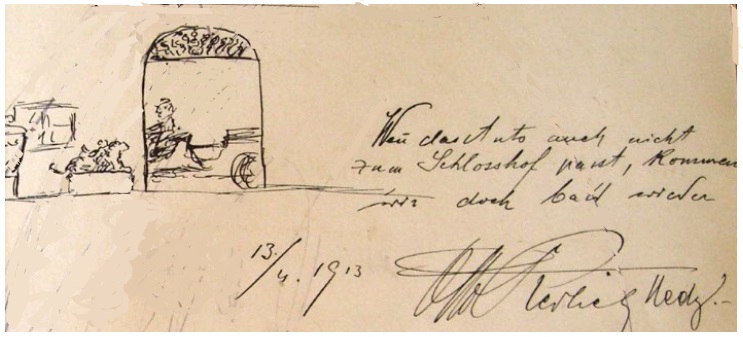 Wen̄ das Auto auch nicht
zum Schlosshof passt, kommen
wir doch bald wieder
13./4. 1913
Otto